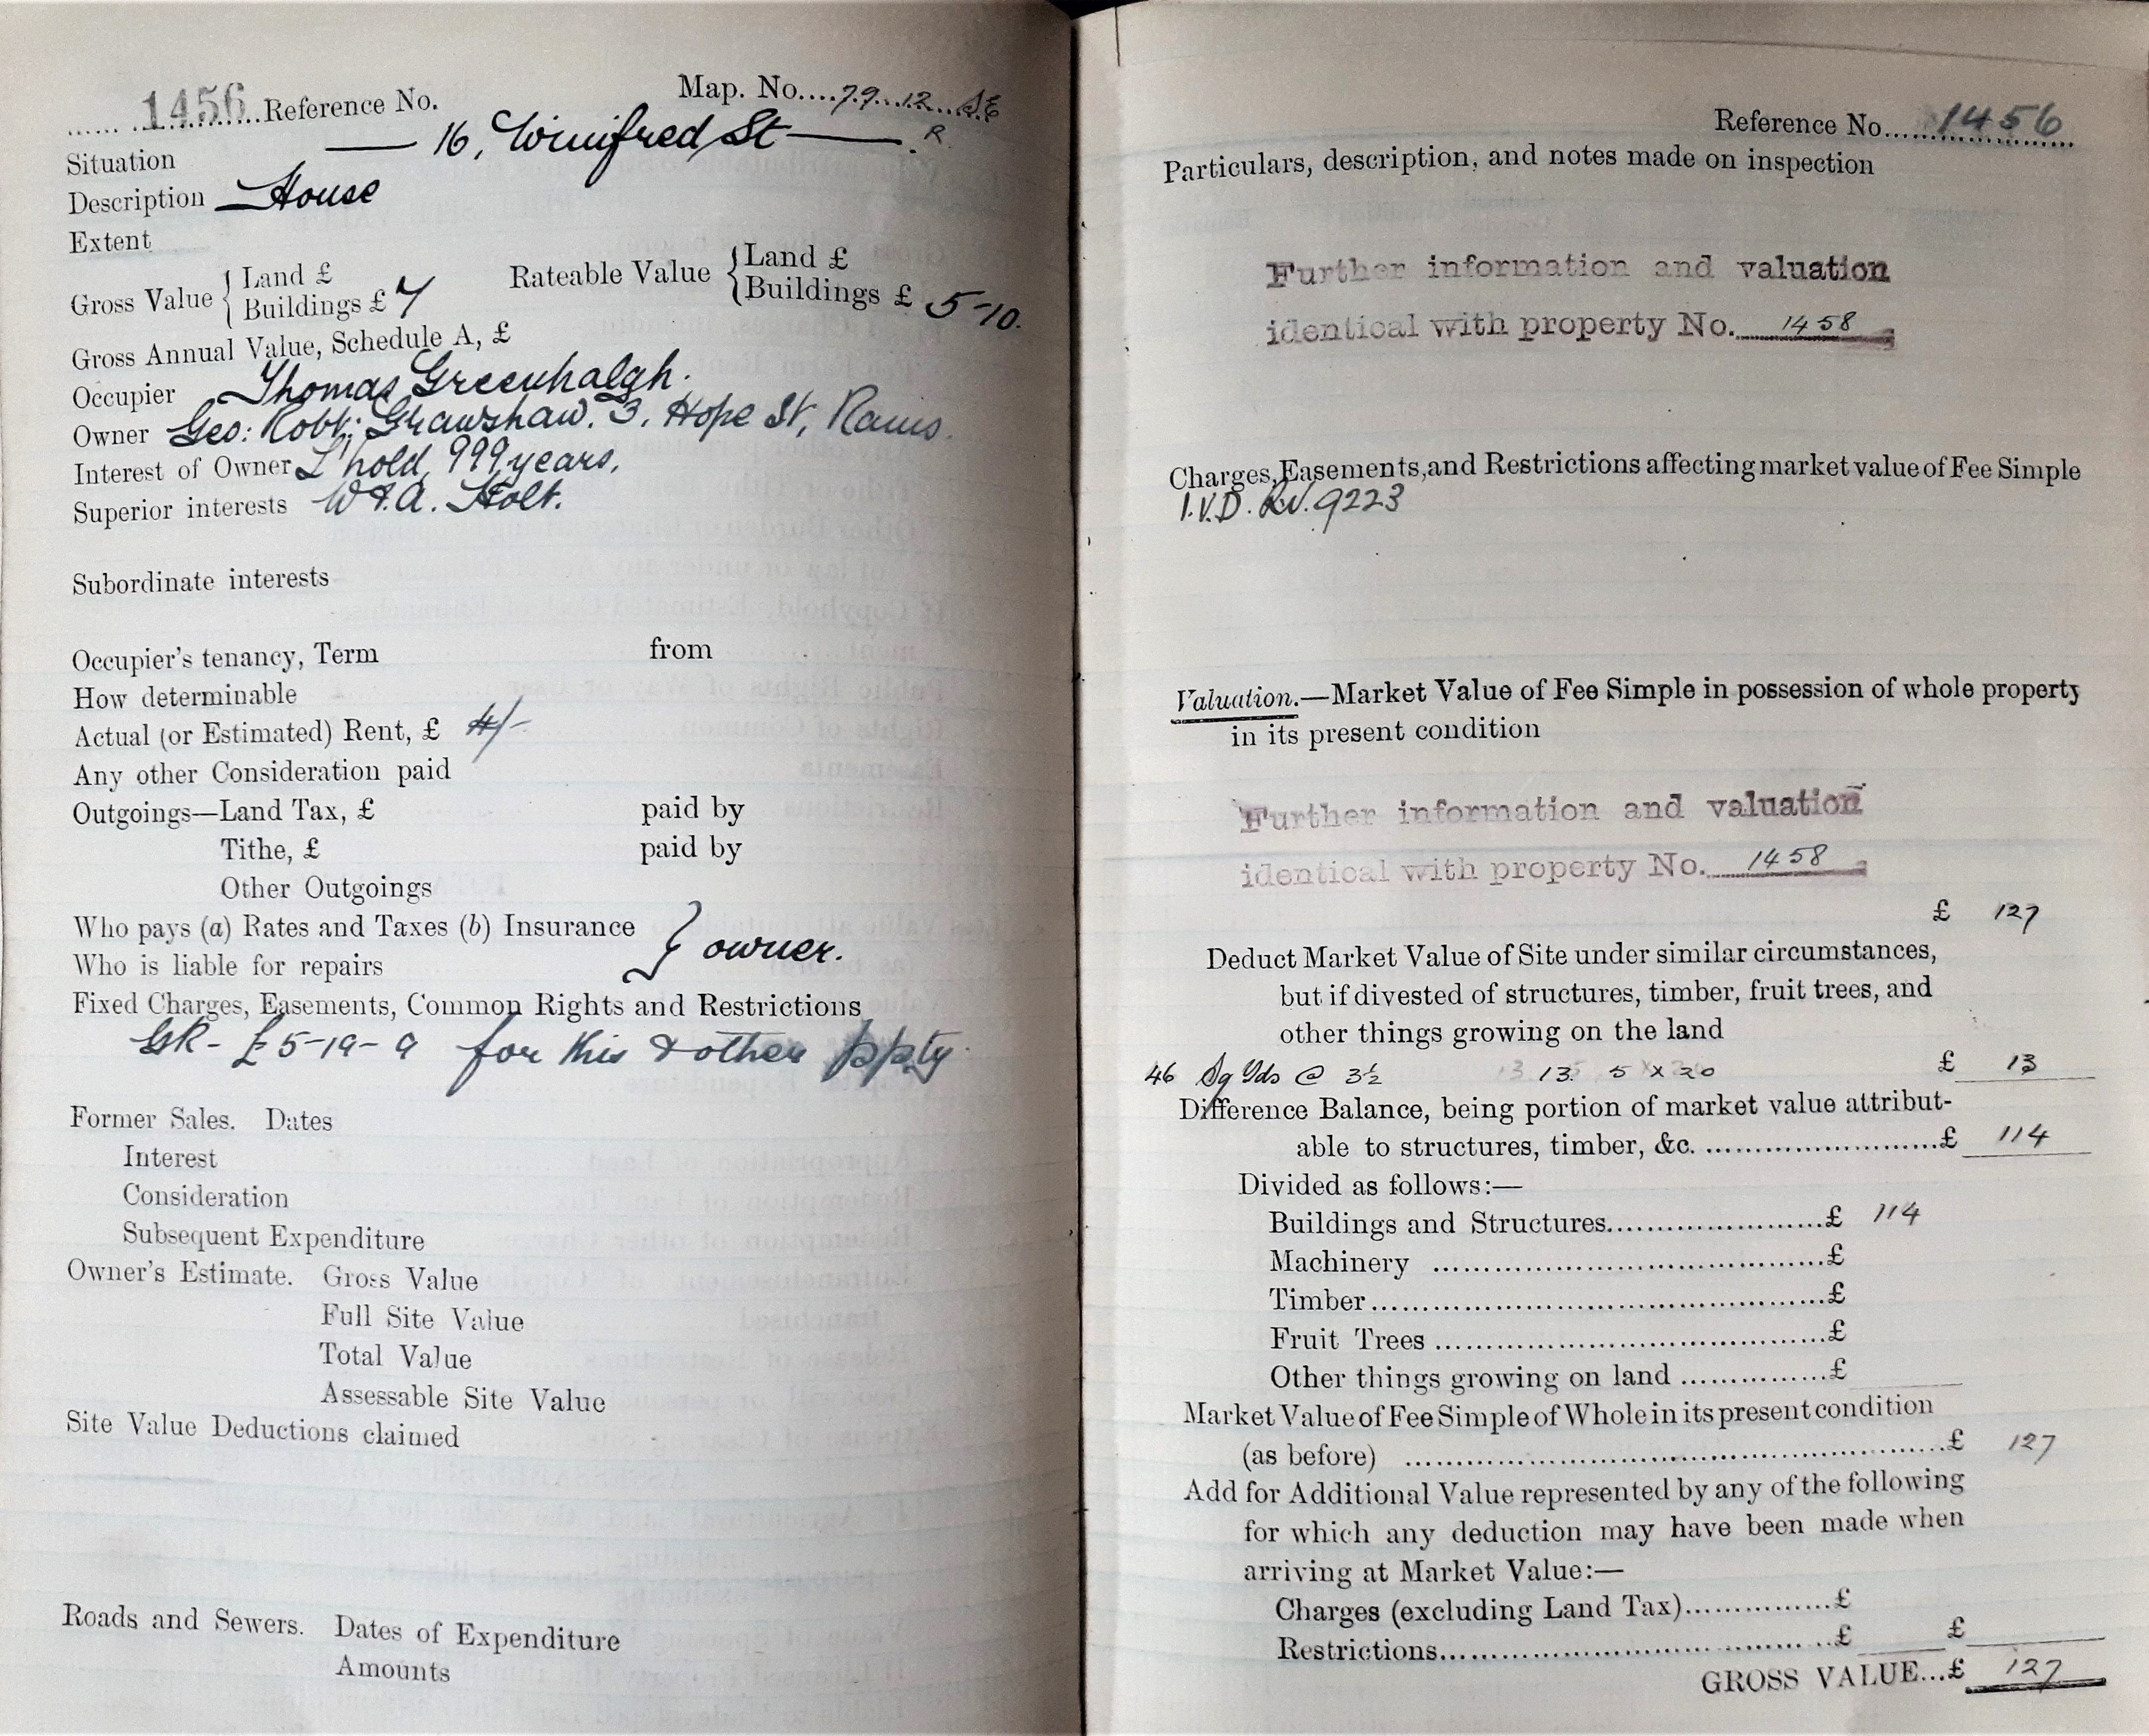 1456 Reference No. Map. No....79.12.SE
R.
Situation — 16, Winifred St —
Description — House
Extent
Gross Value { Land £ Rateable Value { Land £
Buildings £ 7 Buildings £ 5-10.
Gross Annual Value, Schedule A, £
Occupier Thomas Greenhalgh.
Owner Geo: Robt: Grawshaw. 3, Hope St, Rams.
Interest of Owner L'hold, 999 years,
Superior interests W & A. Holt.
Subordinate interests
Occupier's tenancy, Term from
How determinable
Actual (or Estimated) Rent, £ 4/-
Any other Consideration paid
Outgoings—Land Tax, £ paid by
Tithe, £ paid by
Other Outgoings
Who pays (a) Rates and Taxes (b) Insurance } owner.
Who is liable for repairs
Fixed Charges, Easements, Common Rights and Restrictions
GR - £5-19-9 for this & other ppty
Former Sales. Dates
Interest
Consideration
Subsequent Expenditure
Owner's Estimate. Gross Value
Full Site Value
Total Value
Assessable Site Value
Site Value Deductions claimed
Roads and Sewers. Dates of Expenditure
Amounts
Reference No......1456
Particulars, description, and notes made on inspection
Further information and valuation
identical with property No. 1458
Charges, Easements, and Restrictions affecting market value of Fee Simple
I.V.D. RV. 9223
Valuation.—Market Value of Fee Simple in possession of whole property
in its present condition
Further information and valuation
identical with property No. 1458
£ 127
Deduct Market Value of Site under similar circumstances,
but if divested of structures, timber, fruit trees, and
other things growing on the land
46 Sq Yds @ 3½ 13. 5 x 20 £ 13
Difference Balance, being portion of market value attribut-
able to structures, timber, &c. ..........£ 114
Divided as follows:—
Buildings and Structures..........£ 114
Machinery ..........£
Timber..........£
Fruit Trees ..........£
Other things growing on land ..........£
Market Value of Fee Simple of Whole in its present condition
(as before) ..........£ 127
Add for Additional Value represented by any of the following
for which any deduction may have been made when
arriving at Market Value:—
Charges (excluding Land Tax)..........£
Restrictions..........£ £
GROSS VALUE...£ 127